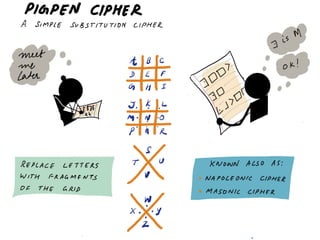 PIGPEN CIPHER
A SIMPLE SUBSTITUTION CIPHER
meet
me
later
J is M
OK!
A B C
D E F
G H I
J K L
M N O
P Q R
S
T U
V
W
X Y
Z
REPLACE LETTERS
WITH FRAGMENTS
OF THE GRID
KNOWN ALSO AS:
- NAPOLEONIC CIPHER
- MASONIC CIPHER